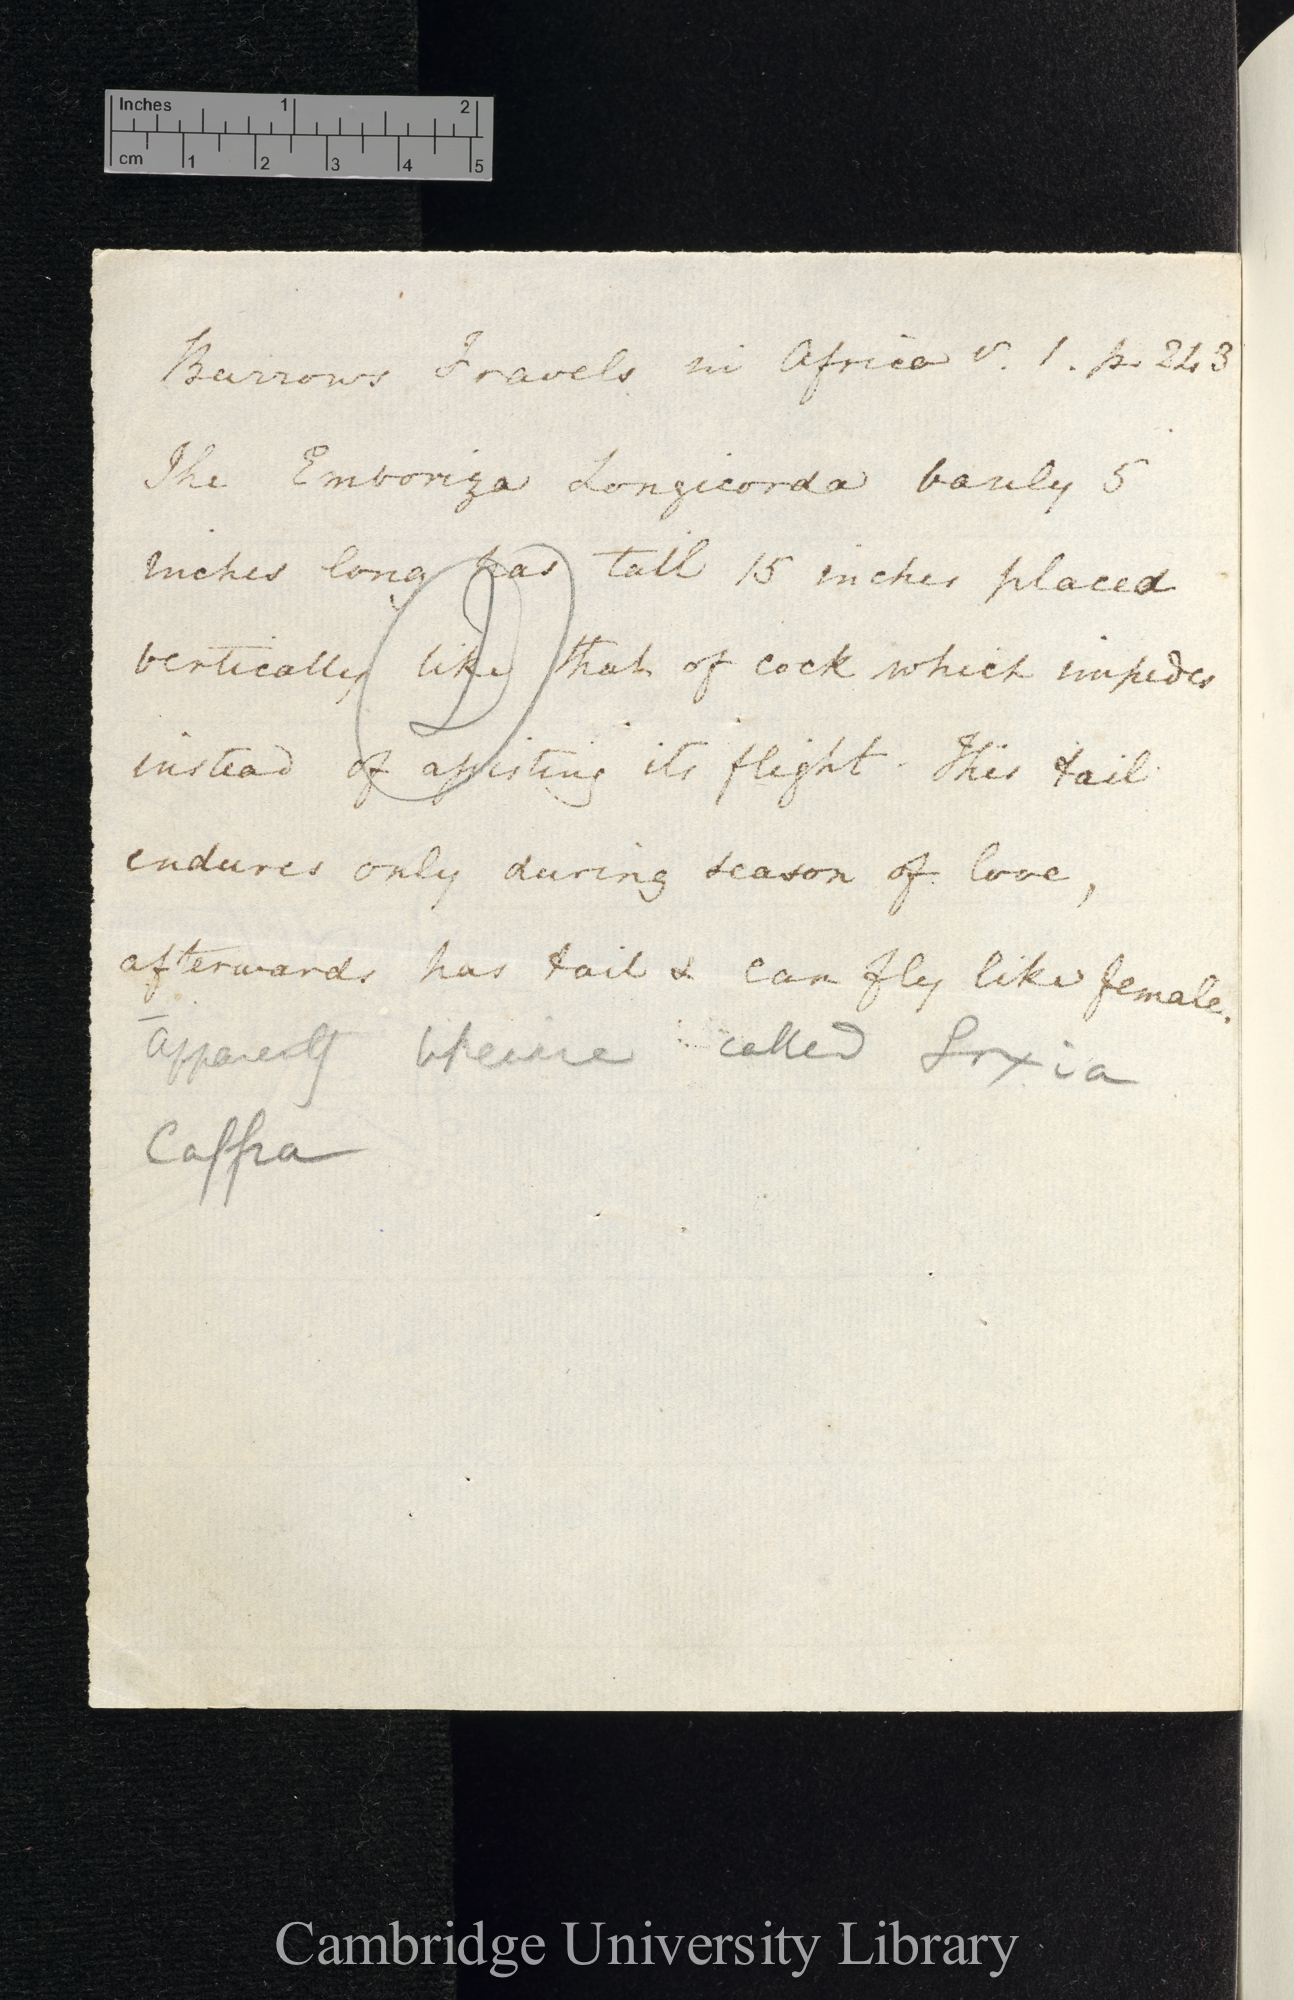 Inches 1 2
cm 1 2 3 4 5
Burrows Travels in Africa v. 1. p. 243
The Emboriza Longicorda barely 5
inches long has tail 15 inches placed
vertically like that of cock which impedes
instead of assisting its flight. This tail
endures only during season of love,
afterwards has tail & can fly like female.
D
Apparently called Loxia
Caffra
Cambridge University Library